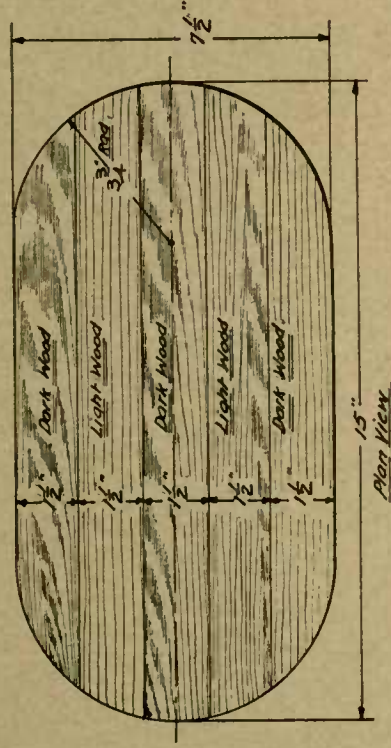 7 1/2"
3 3/4" Rad.
Dark Wood
Light Wood
Dark Wood
Light Wood
Dark Wood
1 1/2"
1 1/2"
1 1/2"
1 1/2"
1 1/2"
15"
Plan View